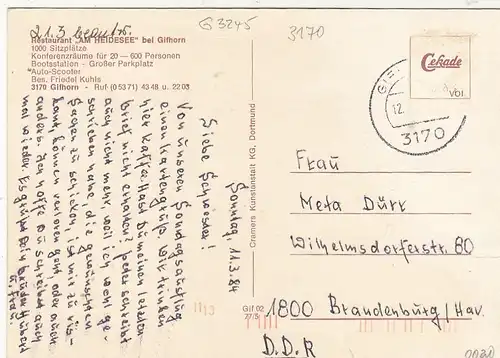 21.3 beantw.
G 3245
3170
Restaurant "AM HEIDESEE" bei Gifhorn
1000 Sitzplätze
Konferenzräume für 20 — 600 Personen
Bootsstation - Großer Parkplatz
Auto-Scooter
Bes. Friedel Kuhls
3170 Gifhorn - Ruf (05371) 4348 u. 2203
Cekade
VOI
GI
12.
3170
Sonntag, 11.3.84
Liebe Schwester!
Von unseren Sonntagsausflug
einen Kartengruß. Wir trinken
hier Kaffee. Hast Du meinen letzten
Brief nicht erhalten? Peter schreibt
auch nicht mehr, weil ich wohl ge-
schrieben habe, die gewünschten
Sachen zu schicken, ist mir zu ris-
kant, können verloren geht, oder auch
anders. Ich hoffe Du schreibst auch
mal wieder. Es grüßt Dein Bruder Hubert
u. Frau.
Cramers Kunstanstalt KG, Dortmund
Gif 02
27/5
Frau
Meta Dürr
Wilhelmsdorferstr. 80
1800 Brandenburg/Hav.
D.D.R
0030